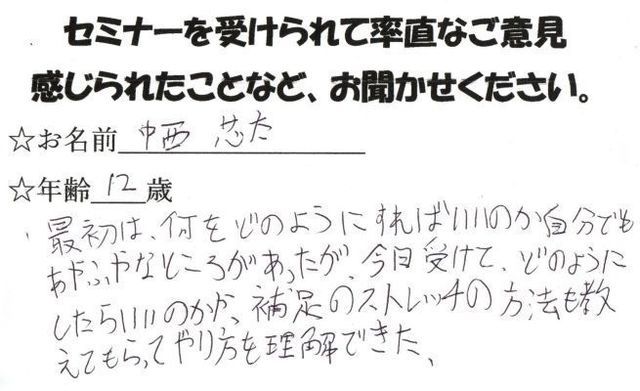 セミナーを受けられて率直なご意見
感じられたことなど、お聞かせください。
☆お名前 中西 芯太
☆年齢 12 歳
最初は、何をどのようにすればいいのか自分でも
あやふやなところがあったが、今日受けて、どのように
したらいいのかが、補足のストレッチの方法も教
えてもらってやり方を理解できた、